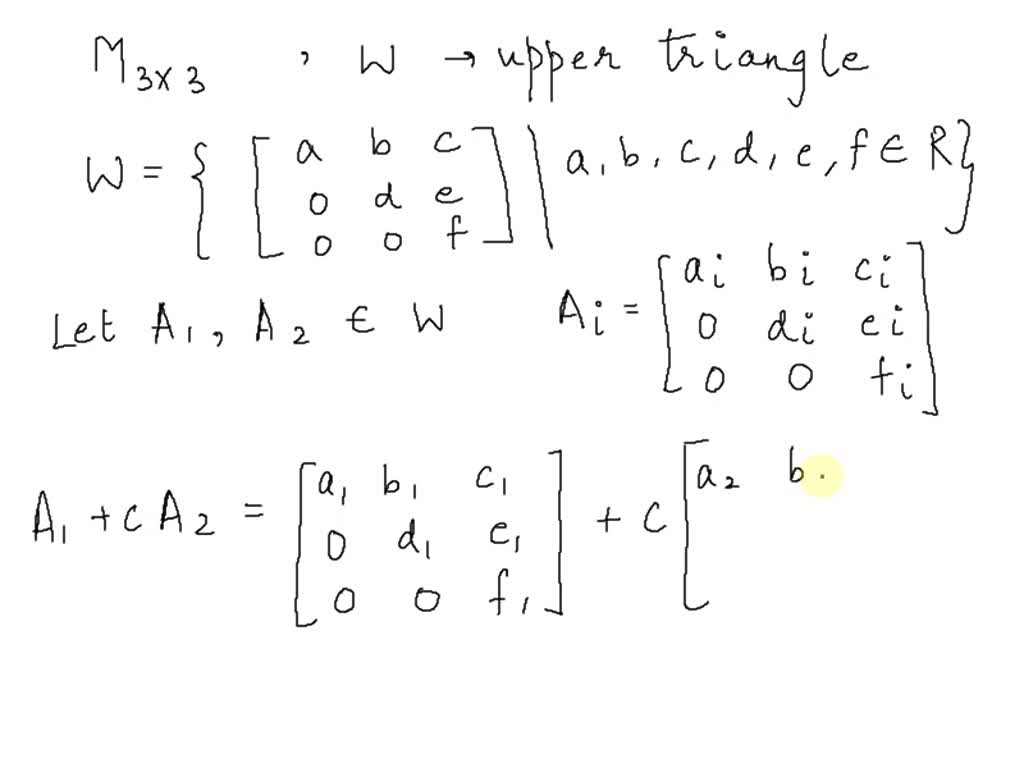 M3×3 , W → upper triangle
W = { [ a b c
0 d e
0 0 f ] | a, b, c, d, e, f ∈ R}
Let A1, A2 ∈ W Ai = [ ai bi ci
0 di ei
0 0 fi ]
A1 + c A2 = [ a1 b1 c1
0 d1 e1
0 0 f1 ] + c [ a2 b.